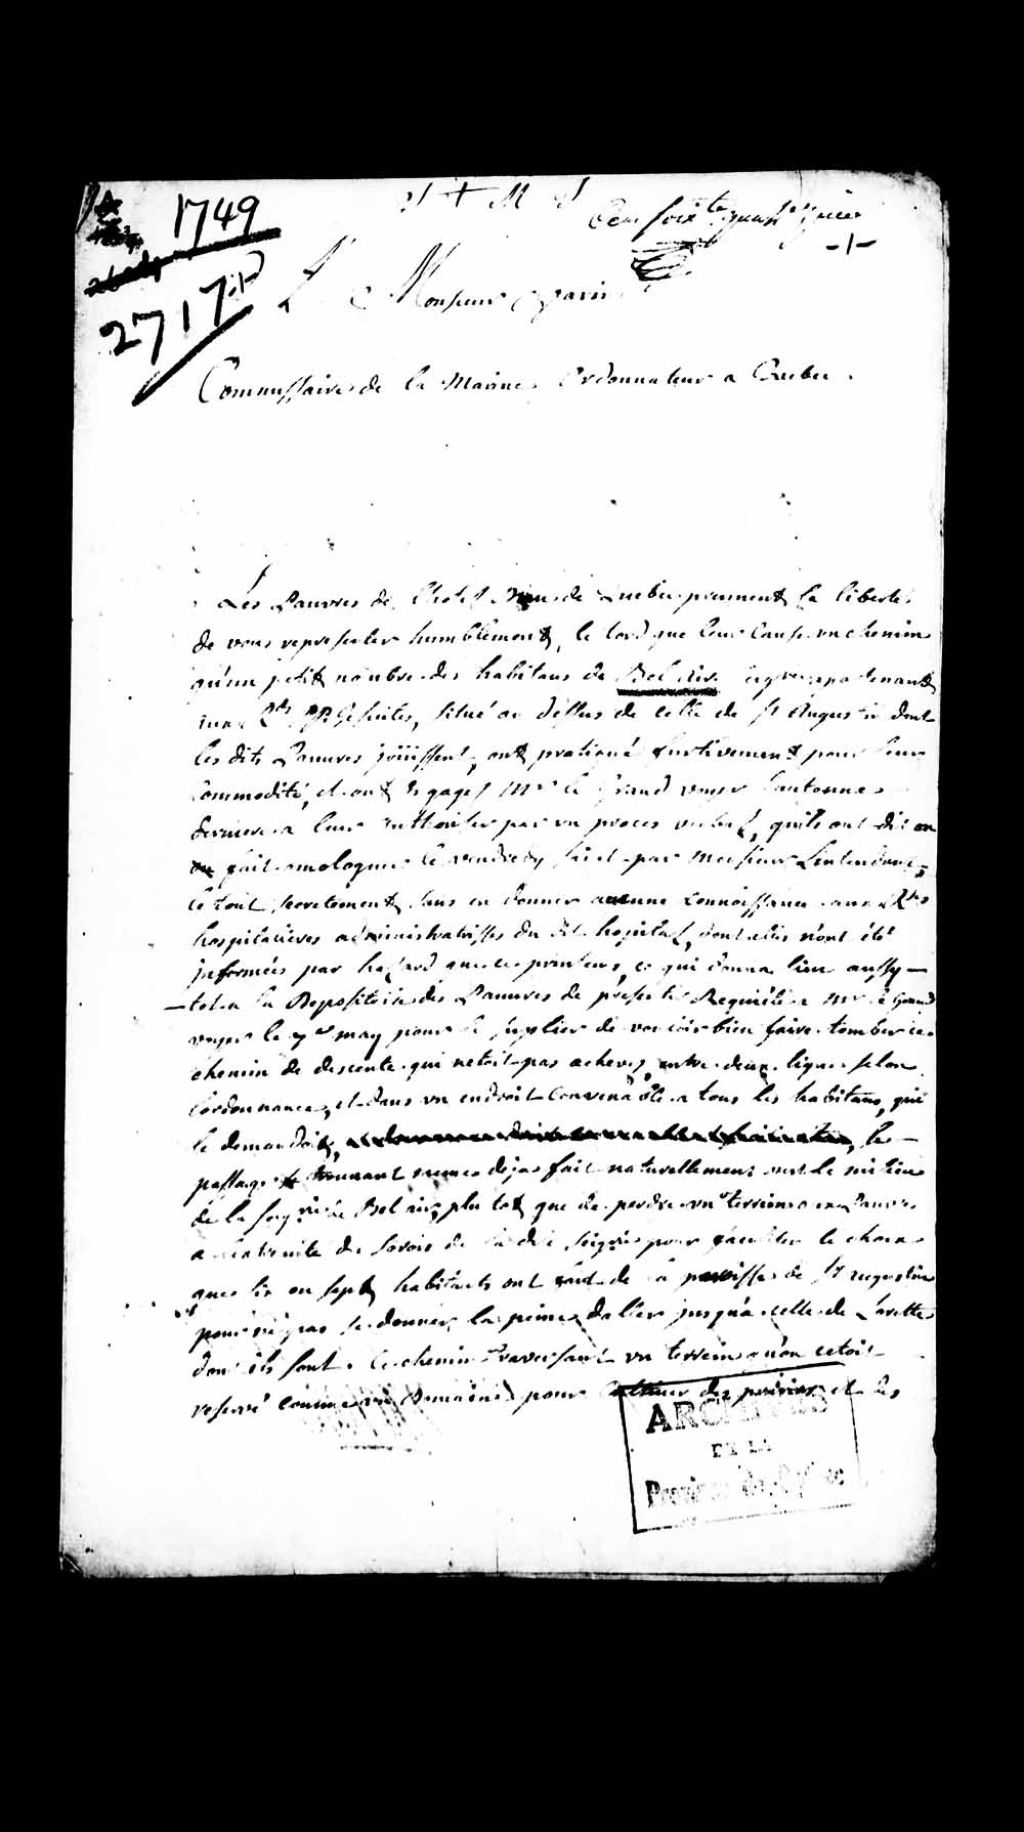 1749
2717
A Monsieur Varin
Commissaire de la Marine Ordonnateur a Quebec.
Les Pauvres de L'hotel Dieu de Quebec prennent la liberté
de vous representer humblement, le tord que leur cause un chemin
qu'un petit nombre des habitans de Bel Air apartenant
aux Rds PP Jesuites, situé au dessus de celle de St Augustin dont
les dits Pauvres joüissent, ont pratiqué furtivement pour leur
commodité, et ont engagés Mr le Grand voyer Lautonne
derniere a leur authoriser par un proces verbal, quils ont dit on
fait omologuer le vendredy saint par Monsieur Lintendant,
le tout secretement sans en donner aucune connoissance aux Rdes
hospitalieres administratrisses du dit hospital, dont elles n'ont été
informées par hazard que ce printems, ce qui donna lieu aussy
tot a la Depositaire des Pauvres de présenter Requéte a Mr le Grand
voyer le 7e may pour le suplier de vouloir bien faire tomber ce
chemin de descente qui netoit pas achevez, entre deux lignes selon
Lordonnance, et dans un endroit convenable a tous les habitans, qui
le demandoit, le
passage se trouvant meme deja fait naturellement vers le milieu
de la seigrie de Bel air, plutot que de perdre un terrein aux Pauvres
a la de la dite Seigrie pour faciliter le chemin
que six ou sept habitants ont fait de la paroisse de St augustin
pour ne pas se donner la peine daller jusqu'a celle de Lorette
dont ils sont. Ce chemin traversant un terrein qu'on cetoit
reservé comme un Domaine pour et les
ARCHIVES
DE LA
Province de Québec